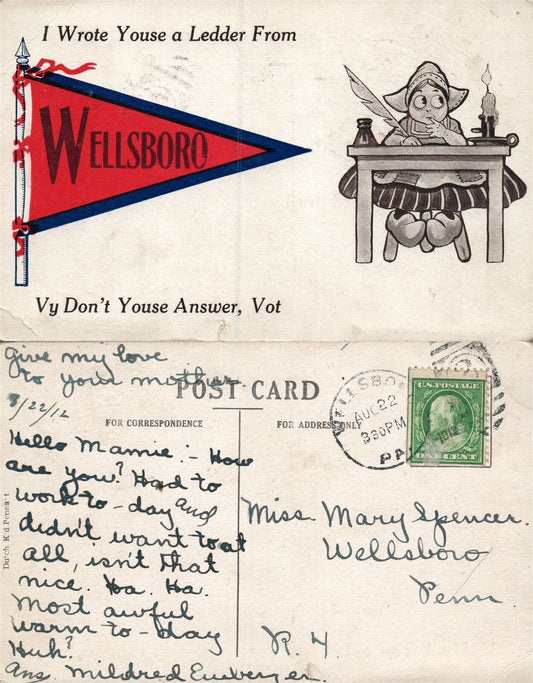 I Wrote Youse a Ledder From
WELLSBORO
Vy Don't Youse Answer, Vot
give my love
to your mother
8/22/12
POST CARD
FOR CORRESPONDENCE
FOR ADDRESS ONLY
WELLSBORO
AUG 22
330PM
PA.
U.S. POSTAGE
ONE CENT
Hello Mamie:- How
are you? Had to
work to-day and
didn't want to at
all, isn't that
nice. Ha. Ha.
Most awful
warm to-day
Huh?
Ans. Mildred
Dutch Kid Pennant
Miss. Mary Spencer.
Wellsboro
Penn
R. 4